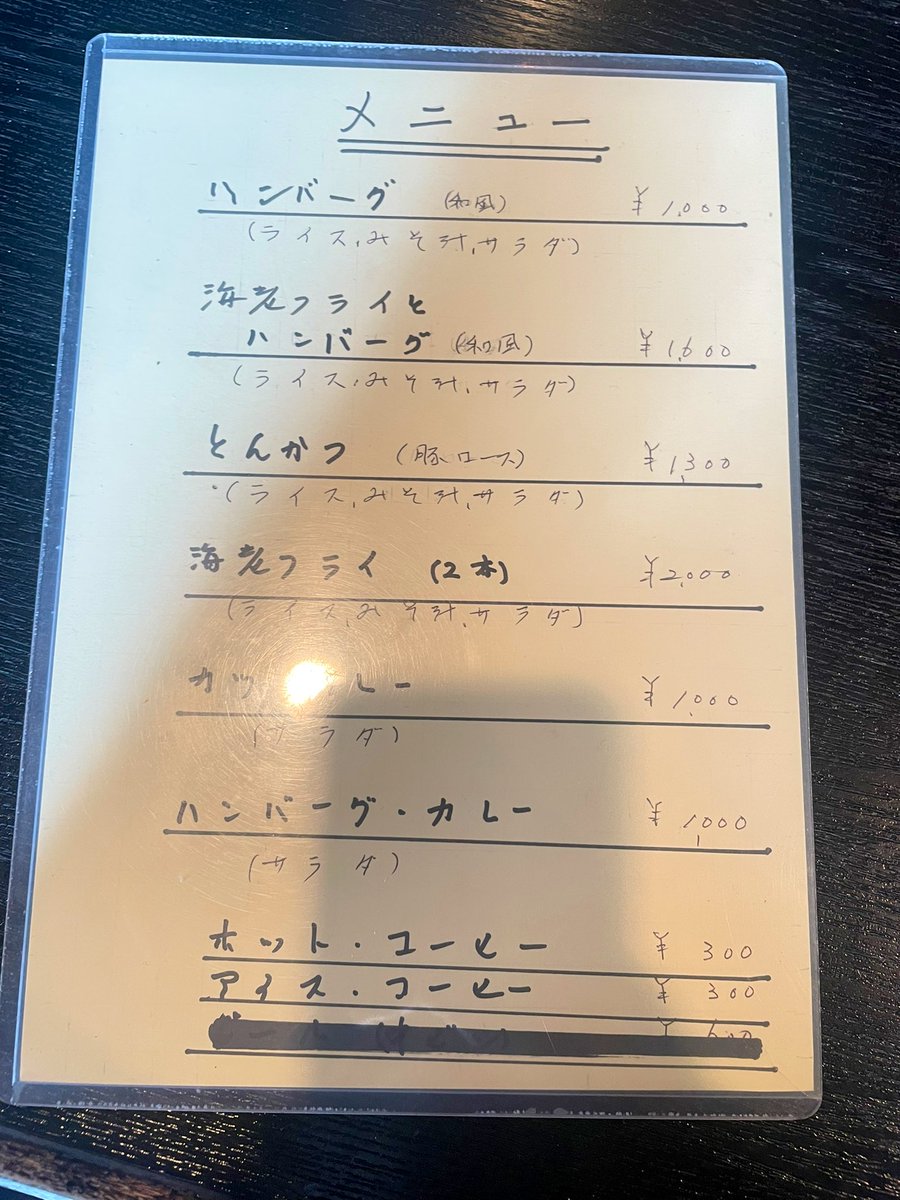 メニュー
ハンバーグ (和風) ¥1,000
(ライス,みそ汁,サラダ)
海老フライと
ハンバーグ (和風) ¥1,600
(ライス,みそ汁,サラダ)
とんかつ (豚ロース) ¥1,300
(ライス,みそ汁,サラダ)
海老フライ (2本) ¥2,000
(ライス,みそ汁,サラダ)
カツ レー ¥1,000
(サラダ)
ハンバーグ・カレー ¥1,000
(サラダ)
ホット・コーヒー ¥300
アイス・コーヒー ¥300